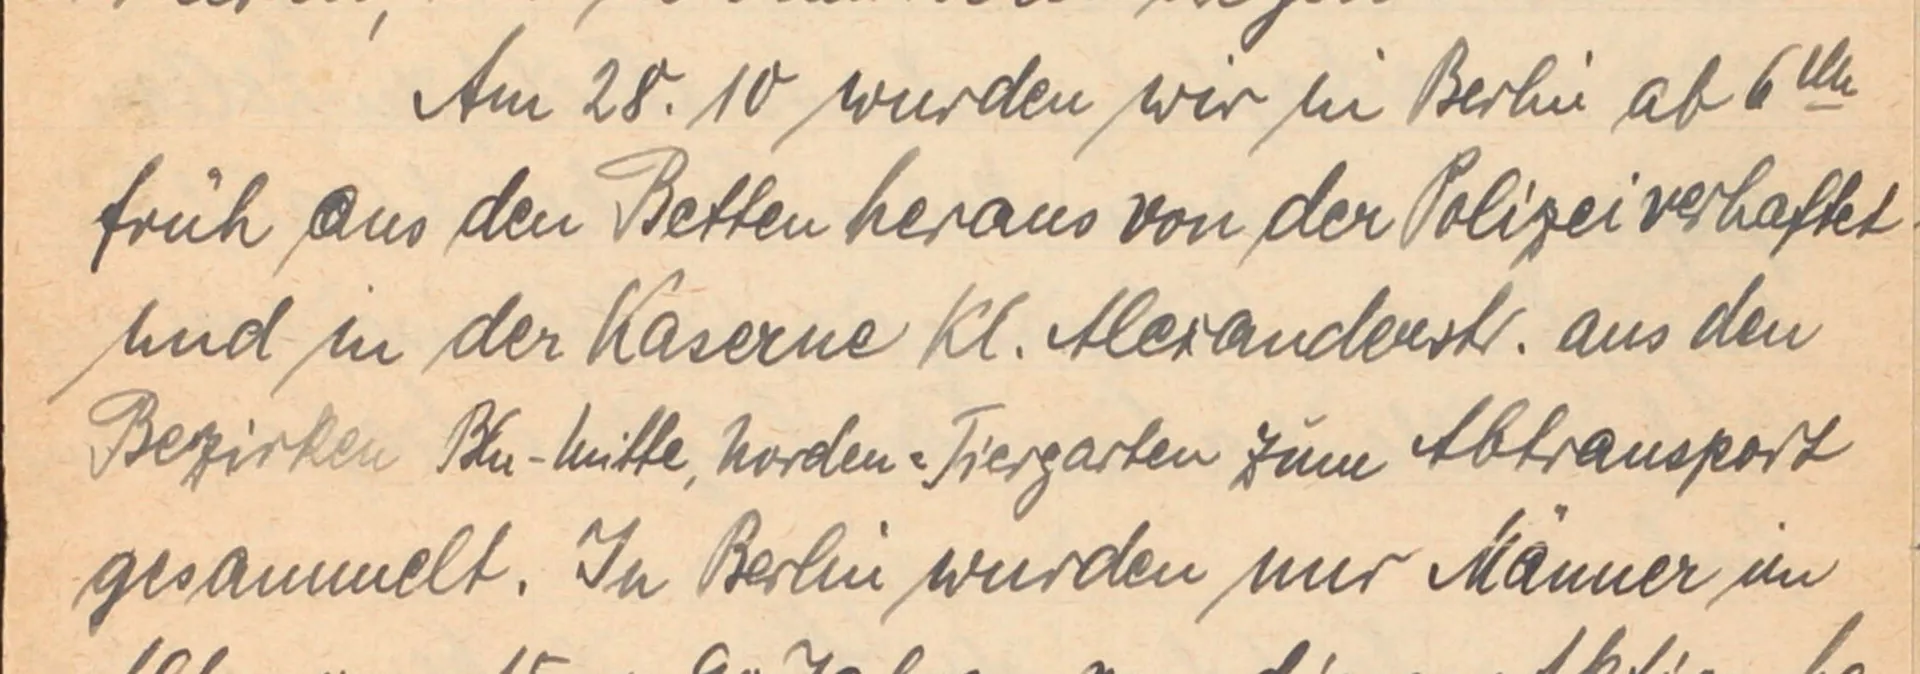 Am 28. 10 wurden wir in Berlin ab 6 Uhr
früh aus den Betten heraus von der Polizei verhaftet
und in der Kaserne Kl. Alexanderstr. aus den
Bezirken Bln-Mitte, Norden-Tiergarten zum Abtransport
gesammelt. In Berlin wurden nur Männer im